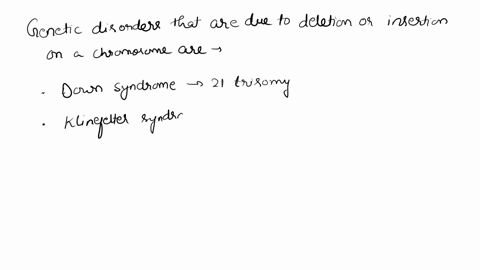 Genetic disorders that are due to deletion or insertion
on a chromosome are →
. Down syndrome → 21 trisomy
. Klinefelter syndr